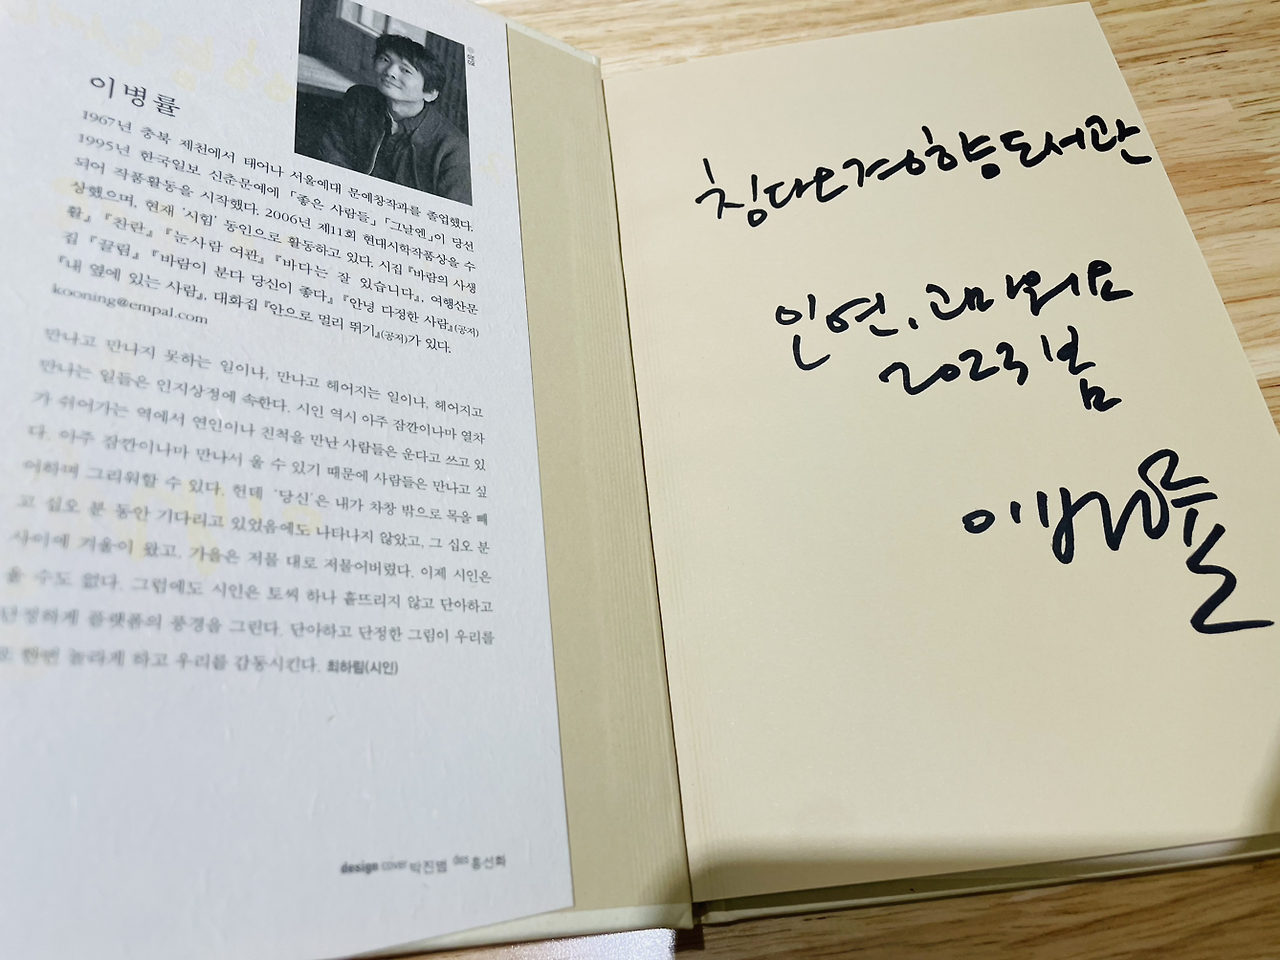 이병률
1967년 충북 제천에서 태어나 서울예대 문예창작과를 졸업했다.
1995년 한국일보 신춘문예에 「좋은 사람들」 「그날엔」이 당선
되어 작품활동을 시작했다. 2006년 제11회 현대시학작품상을 수
상했으며, 현재 '시힘' 동인으로 활동하고 있다. 시집 『바람의 사생
활』 『찬란』 『눈사람 여관』 『바다는 잘 있습니다』, 여행산문
집 『끌림』 『바람이 분다 당신이 좋다』 『안녕 다정한 사람』(공저)
『내 옆에 있는 사람』, 대화집 『안으로 멀리 뛰기』(공저)가 있다.
kooning@empal.com
만나고 만나지 못하는 일이나, 만나고 헤어지는 일이나, 헤어지고
만나는 일들은 인지상정에 속한다. 시인 역시 아주 잠깐이나마 열차
가 쉬어가는 역에서 연인이나 친척을 만난 사람들은 운다고 쓰고 있
다. 아주 잠깐이나마 만나서 울 수 있기 때문에 사람들은 만나고 싶
어하며 그리워할 수 있다. 헌데 '당신'은 내가 차창 밖으로 목을 빼
고 십오 분 동안 기다리고 있었음에도 나타나지 않았고, 그 십오 분
사이에 겨울이 왔고, 가을은 저물 대로 저물어버렸다. 이제 시인은
울 수도 없다. 그럼에도 시인은 토씨 하나 흩뜨리지 않고 단아하고
단정하게 플랫폼의 풍경을 그린다. 단아하고 단정한 그림이 우리를
한번 놀라게 하고 우리를 감동시킨다. 최하림(시인)
design cover 박진범 홍선화
칭다오경향도서관
인연, 고마워요
2023 봄
이병률